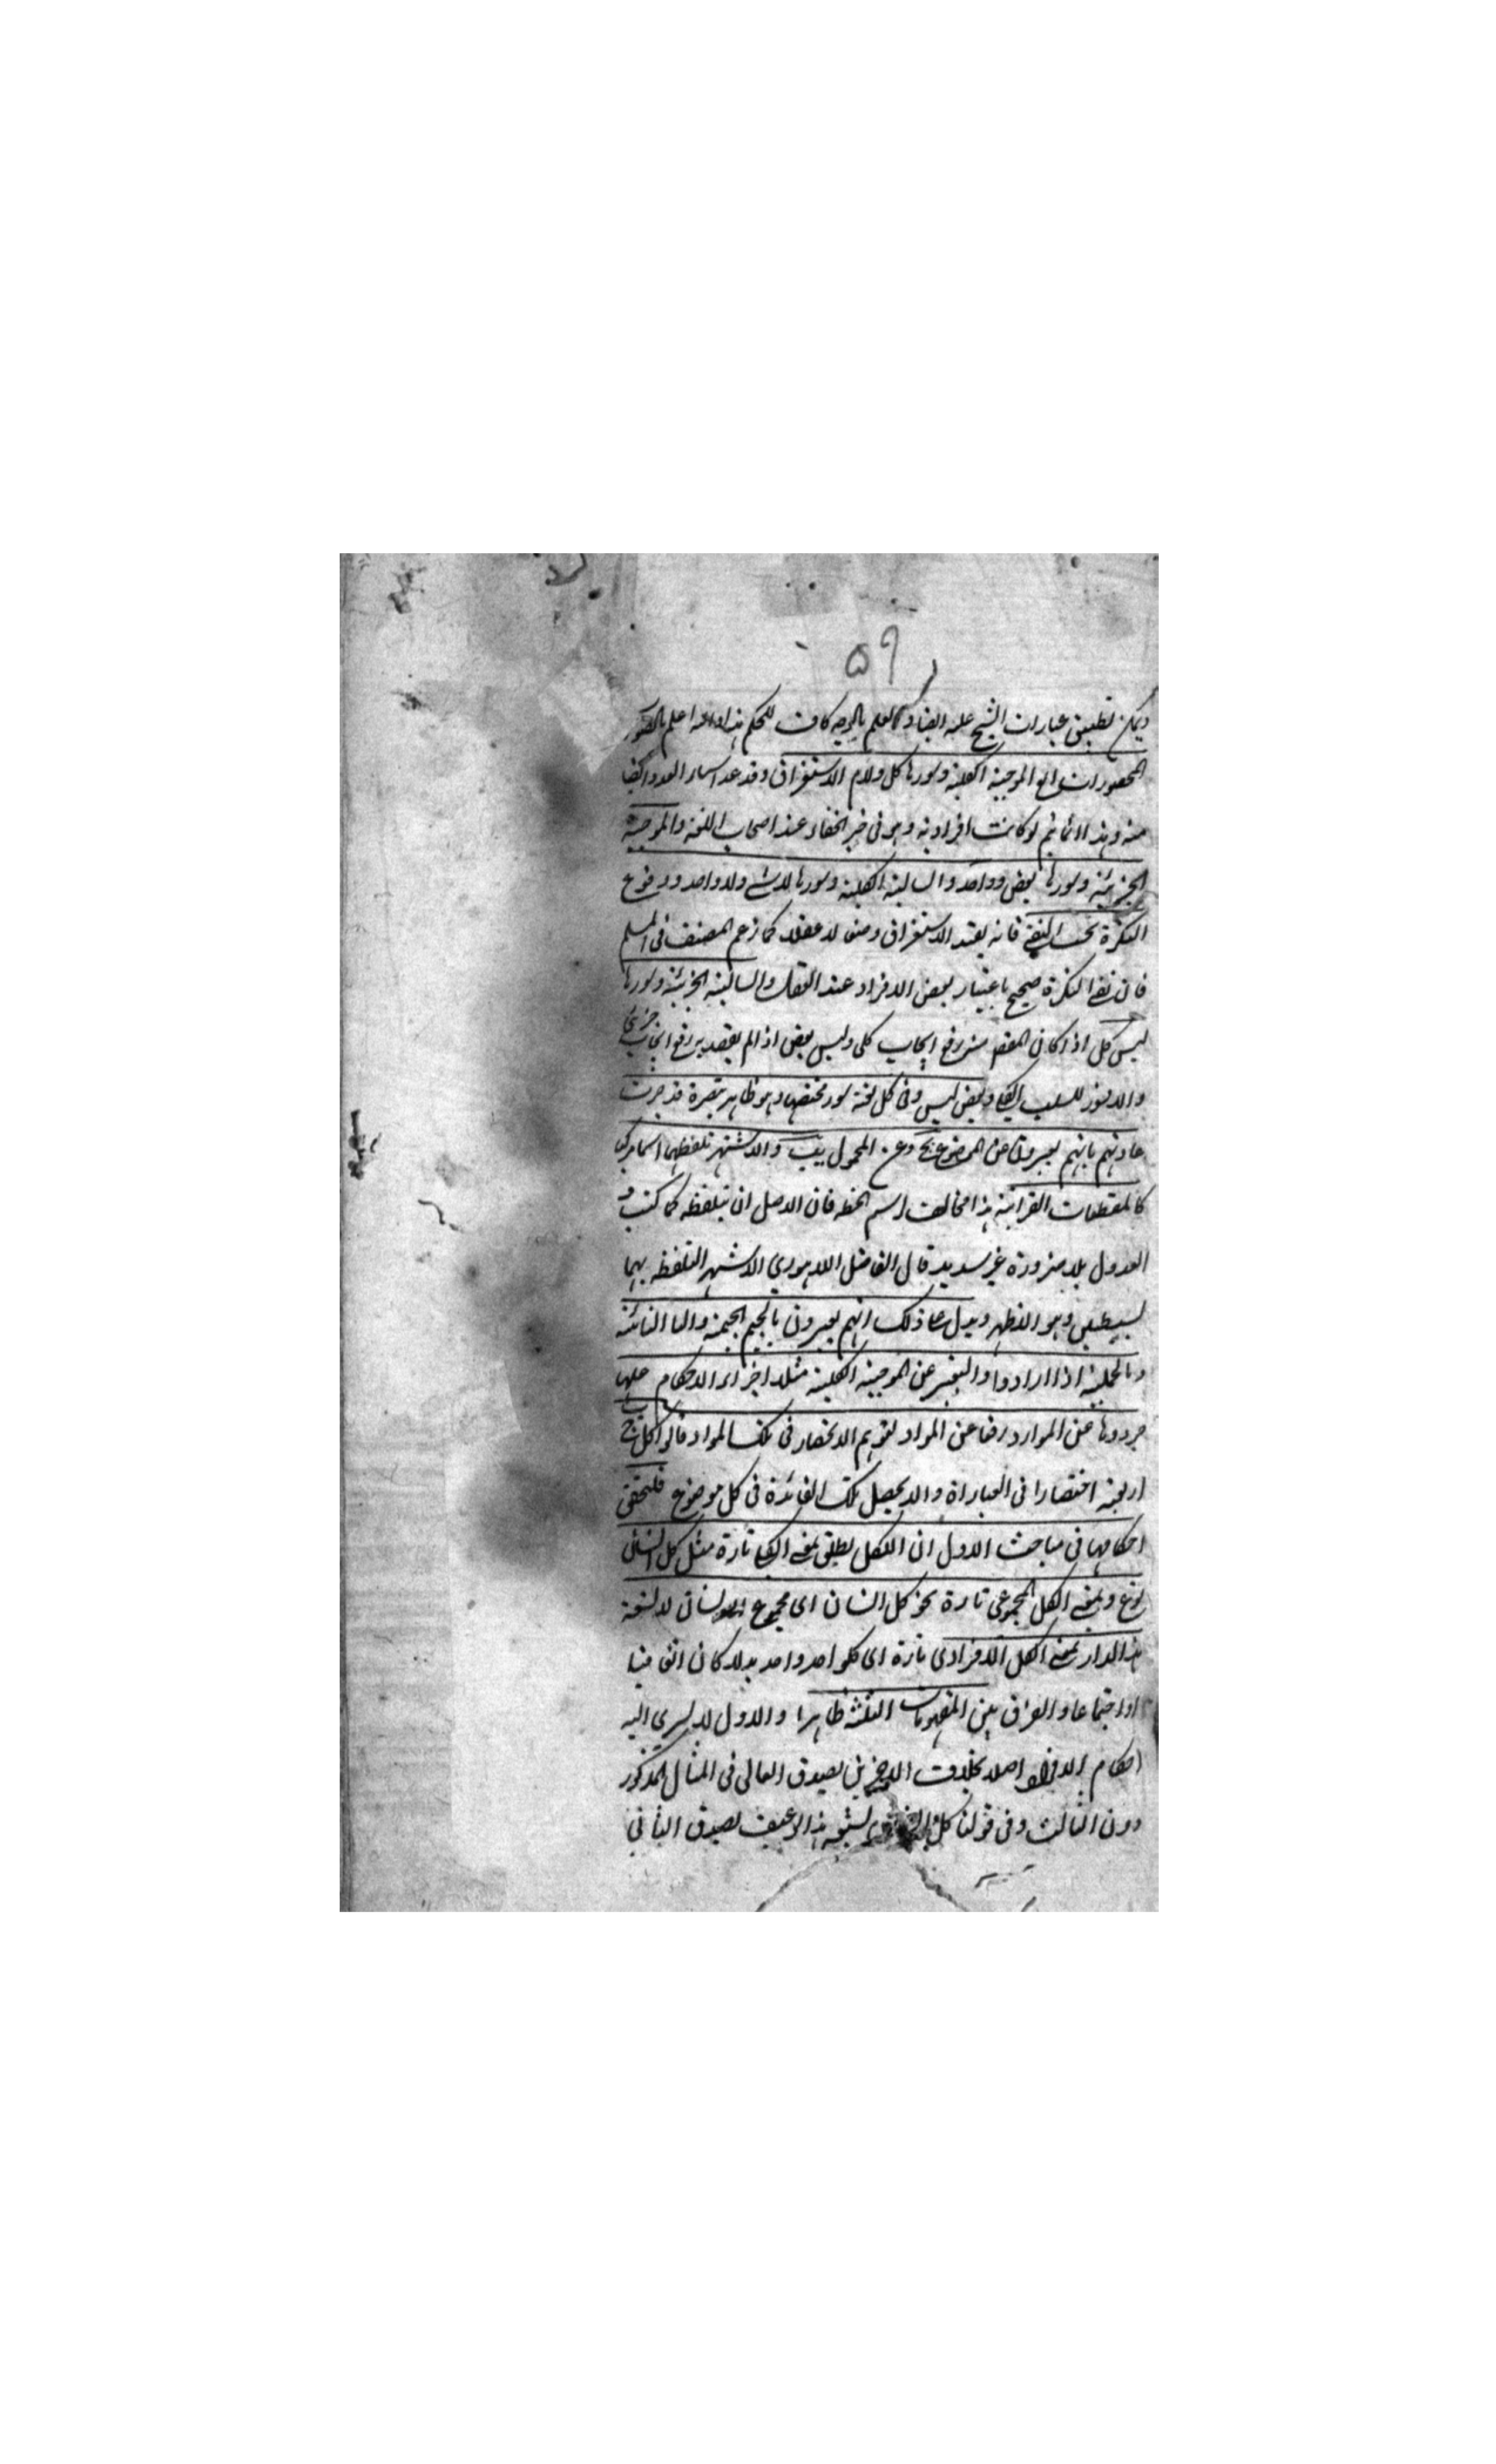 ٥٩
ويمكن تطبيق عبارات الشيخ عليه ايضا والعلم بالوجه كاف للحكم هذا والله اعلم بالصواب
المحصورات اربع الموجبة الكلية وسورها كل ولام الاستغراق وقد عد اسماء العدد ايضا
منه وهذا انما يتم لو كانت افرادية وهو فى خبر الخفاء عند اصحاب اللغة والموجبة
الجزئية وسورها بعض وواحد والسالبة الكلية وسورها لا شئ ولا واحد ووقوع
النكرة تحت النفى فانه يفيد الاستغراق وضعا لا عقلا كما زعم المصنف فى المسلم
فان نفى النكرة صحيح باعتبار بعض الافراد عند العقل والسالبة الجزئية وسورها
ليس كل اذا كان المقصد منه رفع ايجاب كلى وليس بعض اذا لم يقصد به رفع ايجاب جزئى
والا سور للسلب الكلى وبعض ليس وفى كل لغة سور مختصها وهو ظاهر تبصرة قد جرت
عادتهم بانهم يعبرون عن الموضوع بج وعن المحمول بب والاشهر تلفظهما اسما مركبا
كالمقطعات القرانية هذا مخالف لرسم الخط فان الاصل ان يتلفظ كما كتب و
العدول بلا ضرورة غير سديد قال الفاضل اللاهوري الاشهر التلفظ بهما
بسيطين وهو الاظهر ويدل على ذلك انهم يعبرون بالجيم الجيمية والبا البائية
وبالجملة اذا ارادوا التعبير عن الموجبة الكلية مثلا اجراء الاحكام عليها
جردوها عن الموارد رفعا عن المواد لتوهم الانحصار فى تلك المواد قالوا كل ج ب
اربعة اختصارا فى العبارة والا يحصل تلك الفائدة فى كل موضوع فلنحقق
احكامها فى مباحث الاول ان الكل يطلق بمعنى الكلى تارة مثل كل انسان
نوع وبمعنى الكل المجموعى تارة نحو كل انسان اى مجموع الانسان لا يسعه
هذا الدار بمعنى الكل الافرادى تارة اى كل واحد واحد بدلا كان
او اجتماعا والفرق بين المفهومات الثلثة ظاهرا والاول لا يسرى اليه
احكام الافراد اصلا بخلاف الاخرين يصدق العالى فى المثال المذكور
دون الثالث وفى قولنا كل انسان يشبعه هذا الرغيف يصدق الثانى